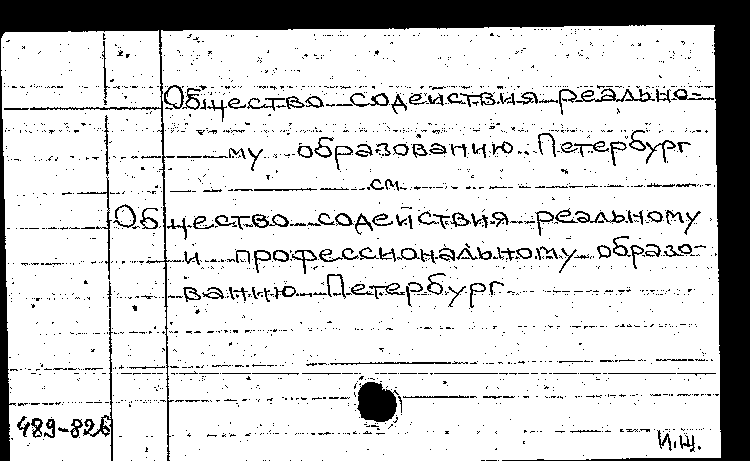 Общество содействия реально-
му образованию. Петербург
см.
Общество содействия реальному
и профессиональному образо-
ванию. Петербург
489-826
И.Щ.